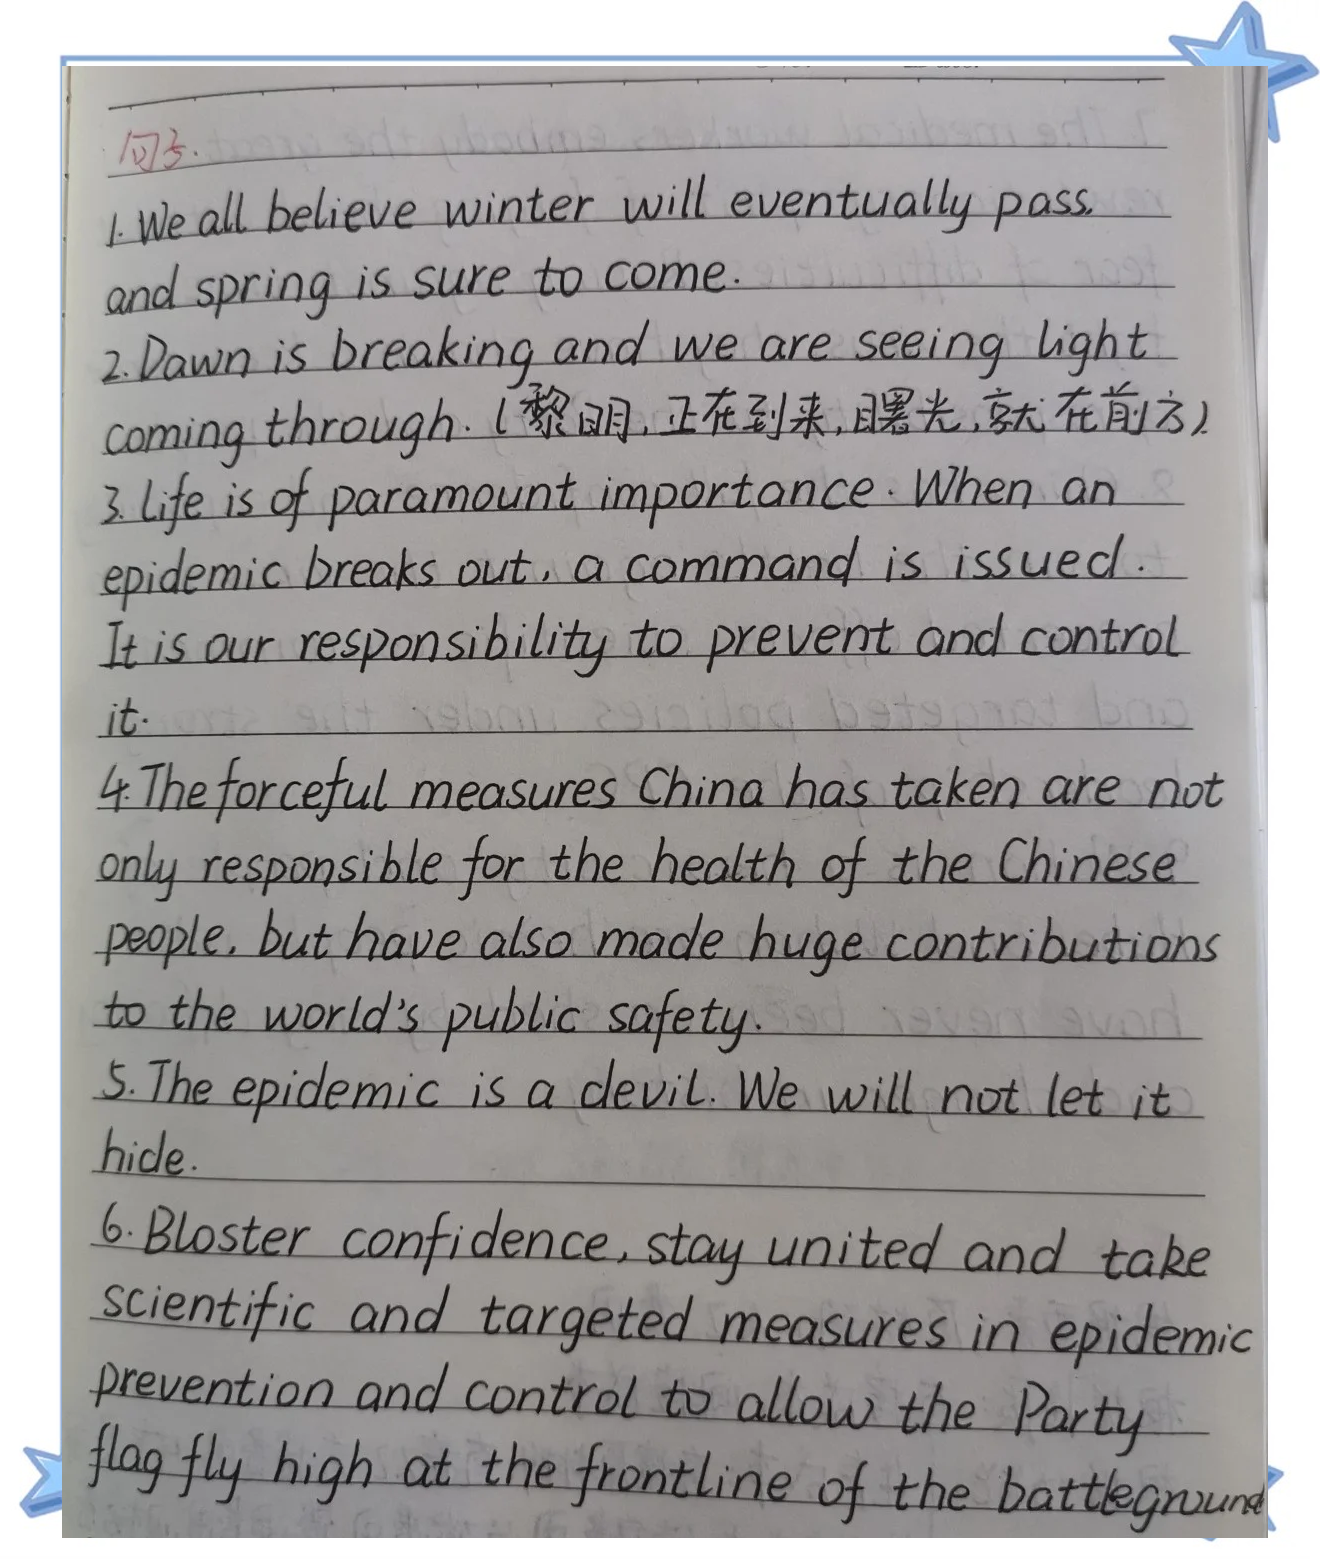 句子.
1. We all believe winter will eventually pass.
and spring is sure to come.
2. Dawn is breaking and we are seeing light
coming through. (黎明,正在到来,曙光,就在前方).
3. Life is of paramount importance. When an
epidemic breaks out, a command is issued.
It is our responsibility to prevent and control
it.
4. The forceful measures China has taken are not
only responsible for the health of the Chinese
people, but have also made huge contributions
to the world's public safety.
5. The epidemic is a devil. We will not let it
hide.
6. Bloster confidence, stay united and take
scientific and targeted measures in epidemic
prevention and control to allow the Party
flag fly high at the frontline of the battleground